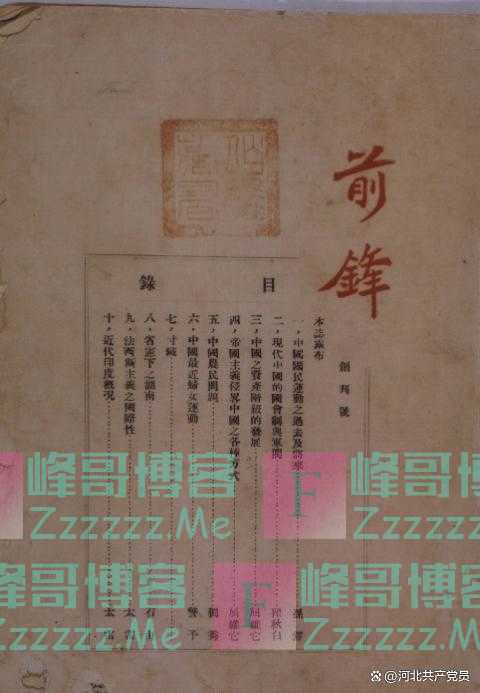 前鋒
創刊號
目錄
本誌露布
一，中國國民運動之過去及將來
二，現代中國的國會制與軍閥 瞿秋白
三，中國之資產階級的發展 屈維它
四，帝國主義侵略中國之各種方式 屈維它
五，中國農民問題
六，中國最近婦女運動 警予
七，寸鐵
八，省憲下之湖南 石山
九，法西斯主義之國際性 太雷
十，近代印度概況 太雷
峰哥博客
Zzzzzz.Me
F
峰哥博客
Zzzzzz.Me
峰哥博客
Zzzzzz.Me
F
峰哥博客
Zzzzzz.Me
@河北共产党员